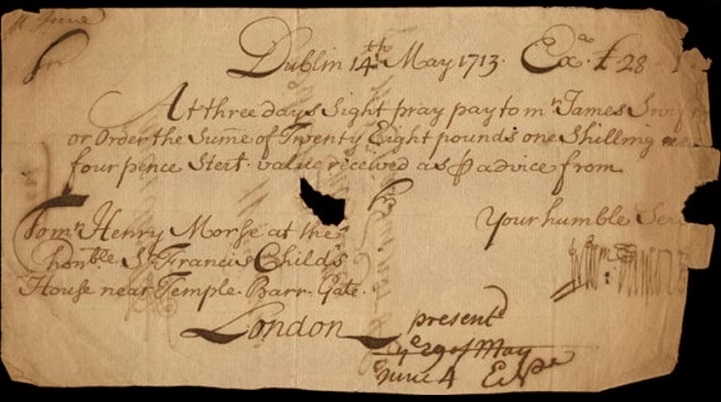 Sr
Dublin 14th May 1713. Exa £ 28
At three days Sight pray pay to mr James
or Order the Sume of Twenty Eight pounds one Shilling
four pence Sterl. value received as p advice from
Your humble
To mr Henry Morse at the
Honble Sr Francis Child's
House near Temple Barr Gate.
London
present
ye 29 of May
June 4